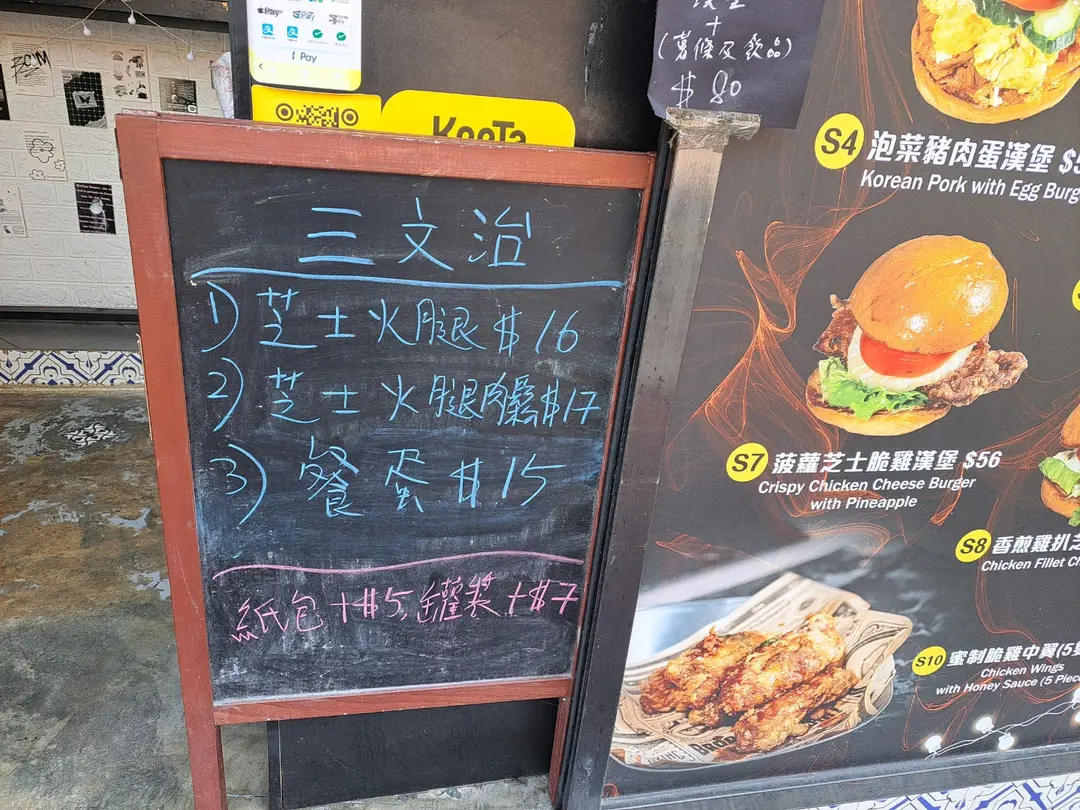 Pay
Pay
Pay
KeeTa
三文治
1) 芝士火腿 $16
2) 芝士火腿肉鬆 $17
3) 餐蛋 $15
紙包+$5, 罐裝+$7
+
(薯條及飲品)
$80
S4 泡菜豬肉蛋漢堡
Korean Pork with Egg Burg
S7 菠蘿芝士脆雞漢堡 $56
Crispy Chicken Cheese Burger
with Pineapple
S8 香煎雞扒芝
Chicken Fillet Ch
S10 蜜制脆雞中翼(5隻
Chicken Wings
with Honey Sauce (5 Piece